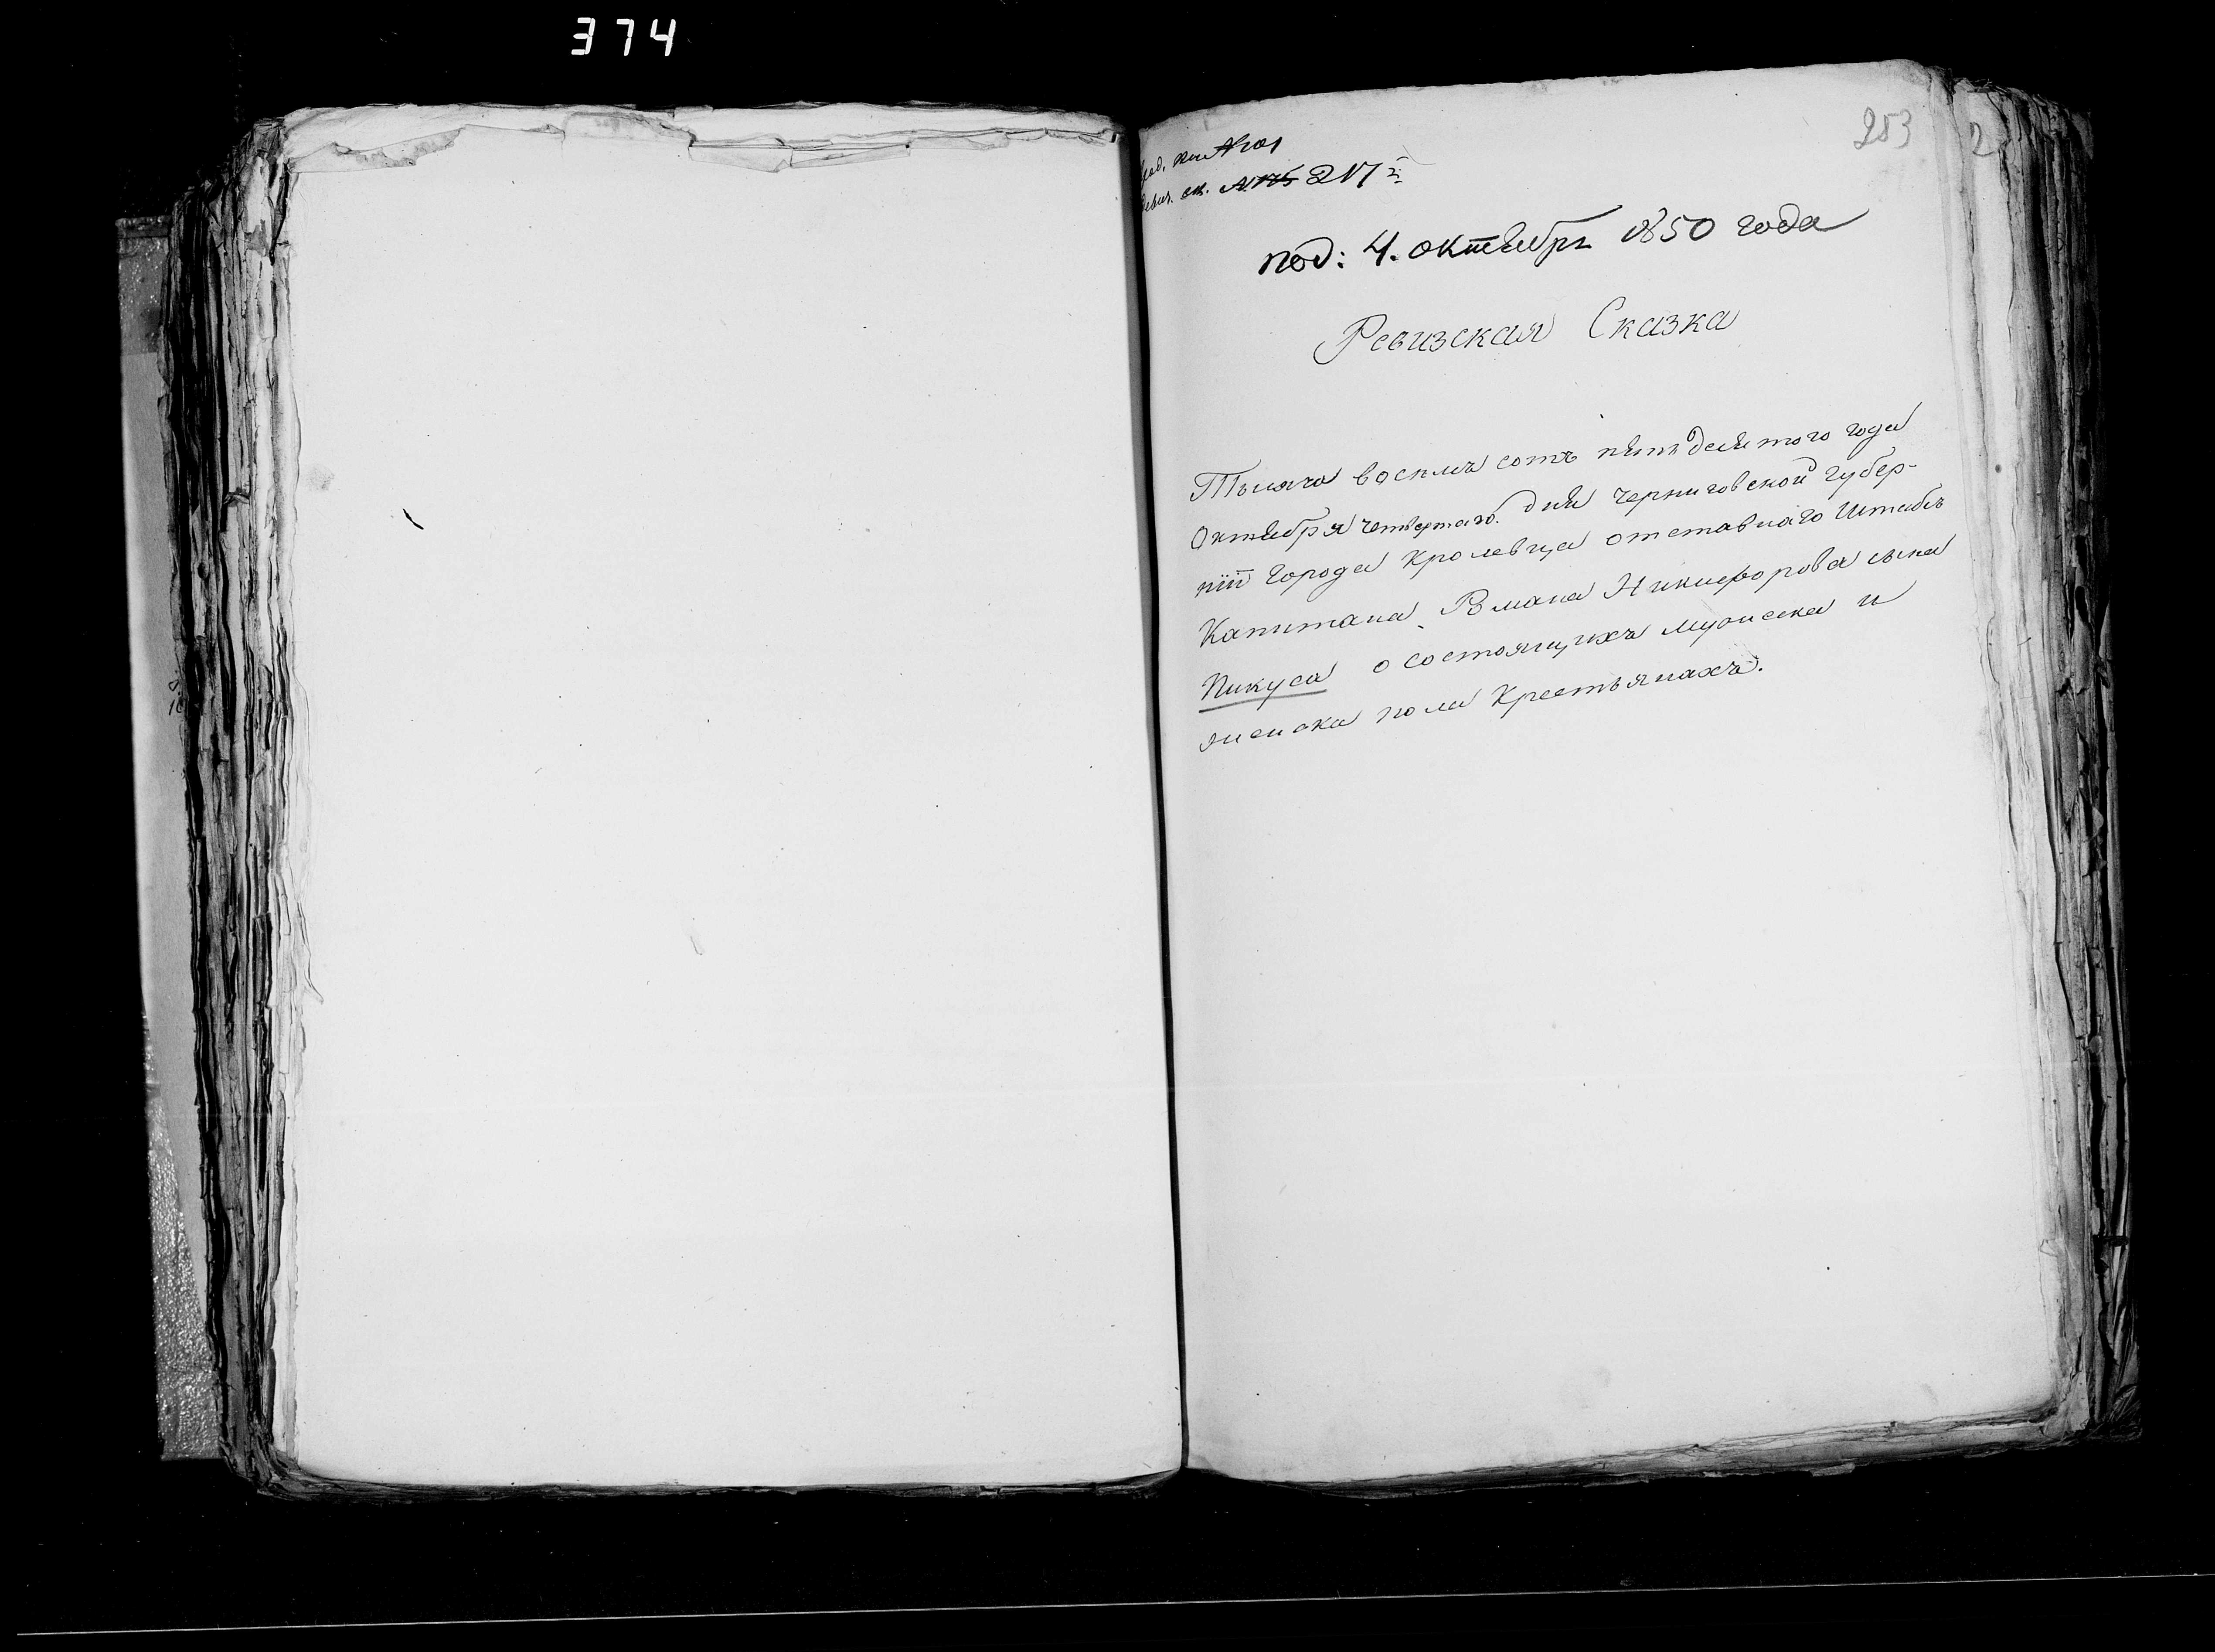 374
253
2
№ 101
ск. № 175 217
под: 4. октября 1850 года
Ревизская Сказка
Тысяча восемъ сотъ пятьдесятого года
Октября четвертаго дня Черниговской губер-
ніи Города Кролевца отставнаго Штабсъ
Капитана Романа Никифорова сына
Пикуса о состоящихъ мужеска и
женска пола Крестьянахъ.